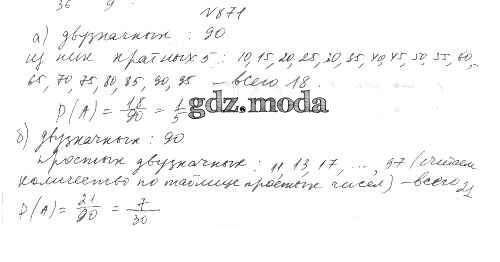 36 9
№871
а) двузначных : 90
из них кратных 5 : 10, 15, 20, 25, 30, 35, 40, 45, 50, 55, 60,
65, 70, 75, 80, 85, 90, 95 – всего 18.
P(A) = 18/90 = 1/5
gdz.moda
б) двузначных : 90
простых двузначных : 11, 13, 17, ..., 97 (считаем
количество по таблице простых чисел) – всего 21
P(A) = 21/90 = 7/30